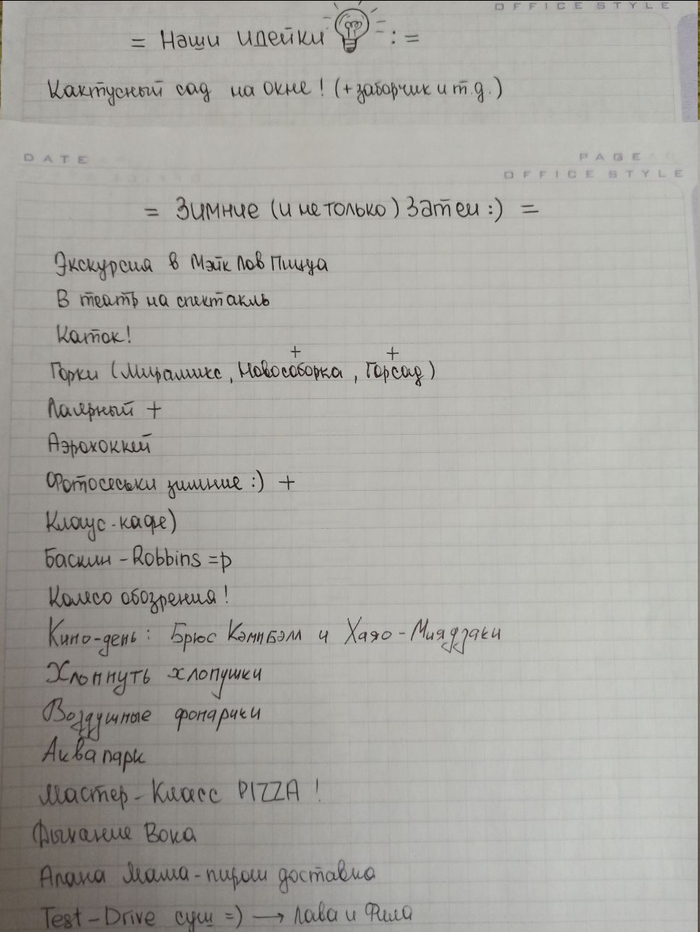 OFFICE STYLE
= Наши идейки : =
Кактусный сад на окне! (+заборчик и т.д.)
DATE
PAGE
OFFICE STYLE
= Зимние (и не только) Затеи :) =
Экскурсия в Мэйк Лав Пицца
В театр на спектакль
Каток!
+ +
Горки (Мирамикс, Новособорка, Горсад)
Лазерный +
Аэрохоккей
Фотосеськи зимние :) +
Клаус-кафе)
Баскин-Robbins =p
Колесо обозрения!
Кино-день: Брюс Кэмпбэлл и Хаяо-Миядзаки
Хлопнуть хлопушки
Воздушные фонарики
Аквапарк
Мастер-Класс PIZZA!
Дыхание Вока
Мама-пироги доставка
Test-Drive суш =) → Лава и Фила